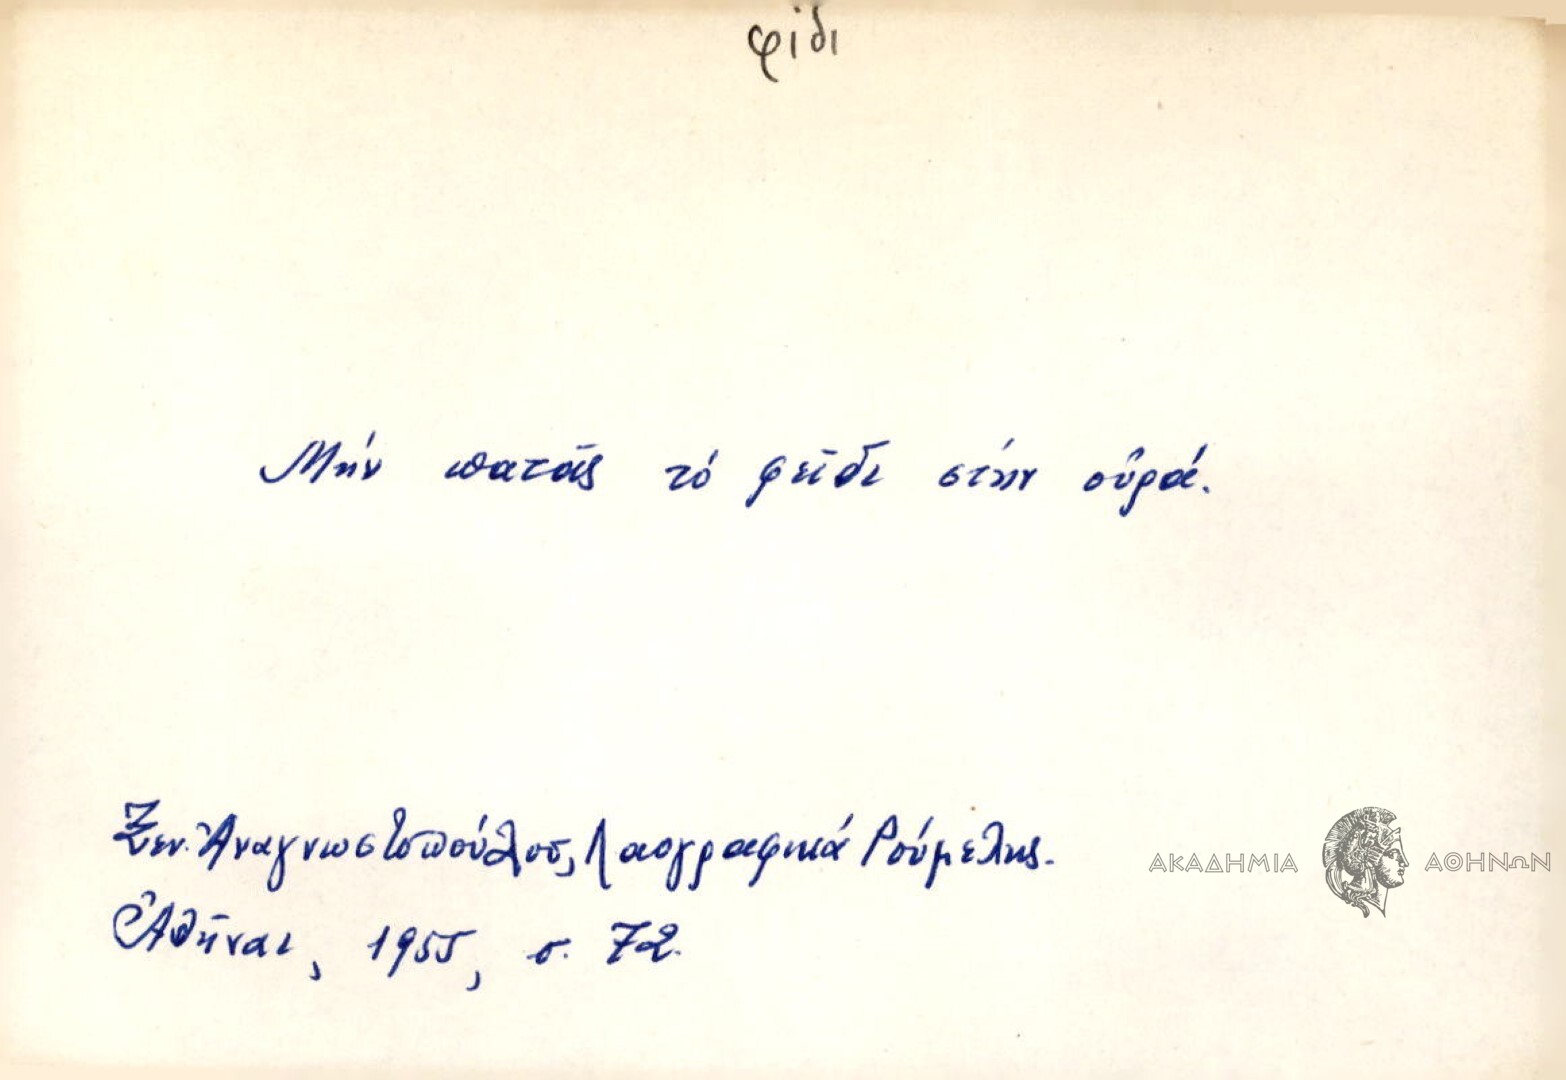 φίδι
Μήν πατᾶς τό φεῖδι στήν οὐρά.
Ξεν. Ἀναγνωστοπούλου, Λαογραφικά Ρούμελης.
Ἀθῆναι, 1955, σ. 72.
ΑΚΑΔΗΜΙΑ ΑΘΗΝΩΝ